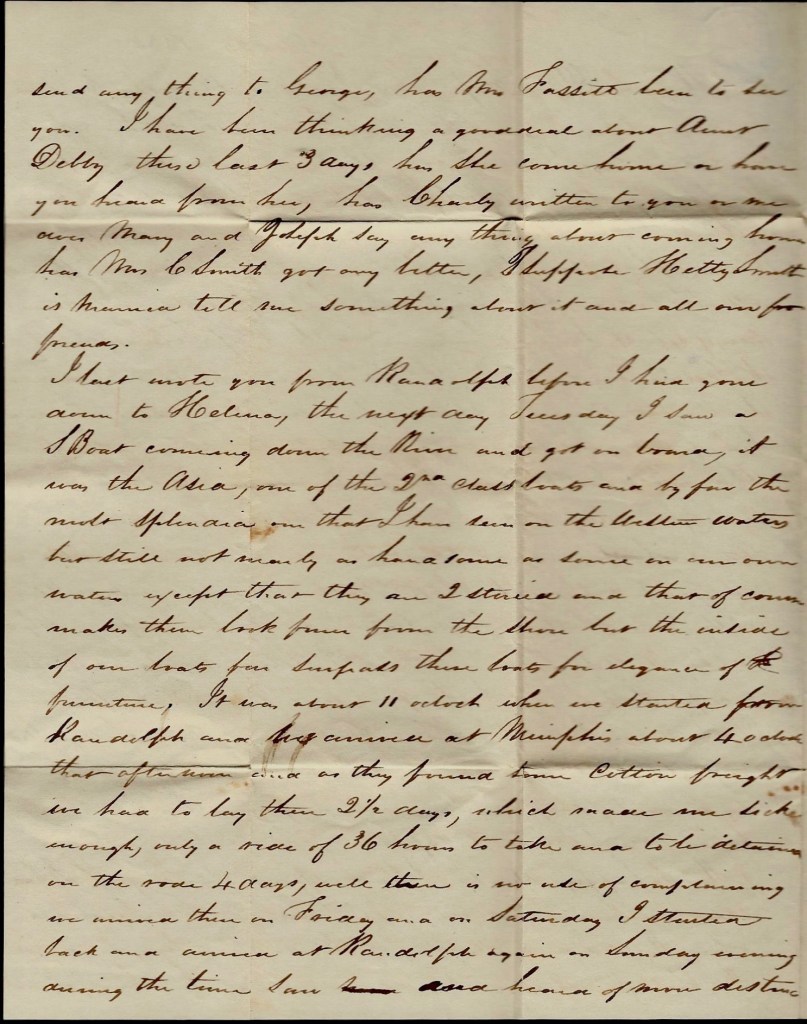 send any thing to George, has Mrs Fassitt been to see
you. I have been thinking a gooddeal about Aunt
Debby these last 3 days has she come home or have
you heard from her, has Charly written to you or me
does Mary and Joseph say any thing about coming home
has Mrs C Smith got any better, I suppose Hetty Smith
is married tell me something about it and all our
friends.
I last wrote you from Randolph before I had gone
down to Helena, the next day Tuesday I saw a
S Boat comeing down the River and got on board, it
was the Asia, one of the 2nd class boats and by far the
most splendid one that I have seen on the Western waters
but still not nearly as handsome as some on our own
waters except that they are 2 storied and that of course
makes them look finer from the shore but the inside
of our boats far surpass these boats for elegance of
furniture, It was about 11 oclock when we started from
Randolph and we arrived at Memphis about 4 oclock
that afternoon and as they found some Cotton freight
we had to lay there 2½ days, which made me sick
enough, only a ride of 36 hours to take and to be detained
on the rode 4 days, well there is no use of complaining
we arived there on Friday and on Saturday I started
back and arived at Randolph again on Sunday evening
during the time saw and heard of more distress